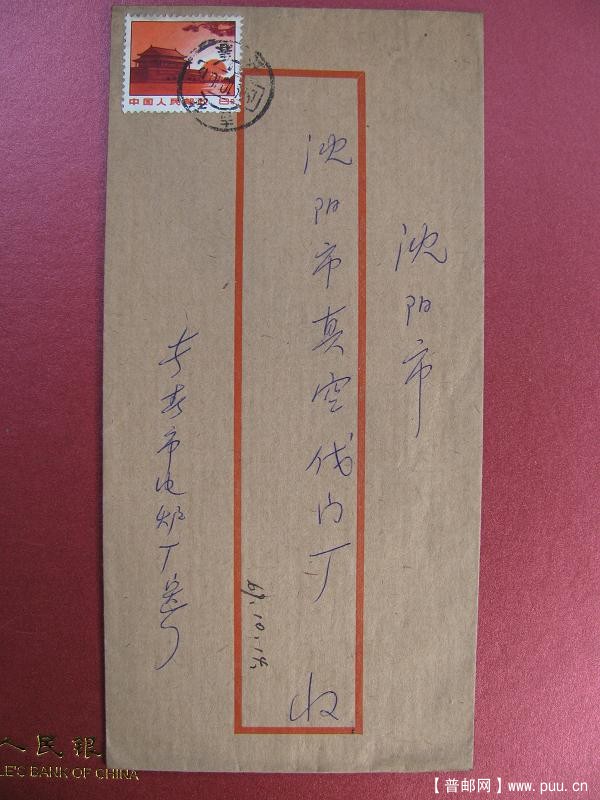 中国人民邮政 8分
沈阳市
沈阳市真空伐门厂 收
69.10.14.
长春市电炉厂
人民銀
LE'S BANK OF CHINA
【普邮网】www.puu.cn